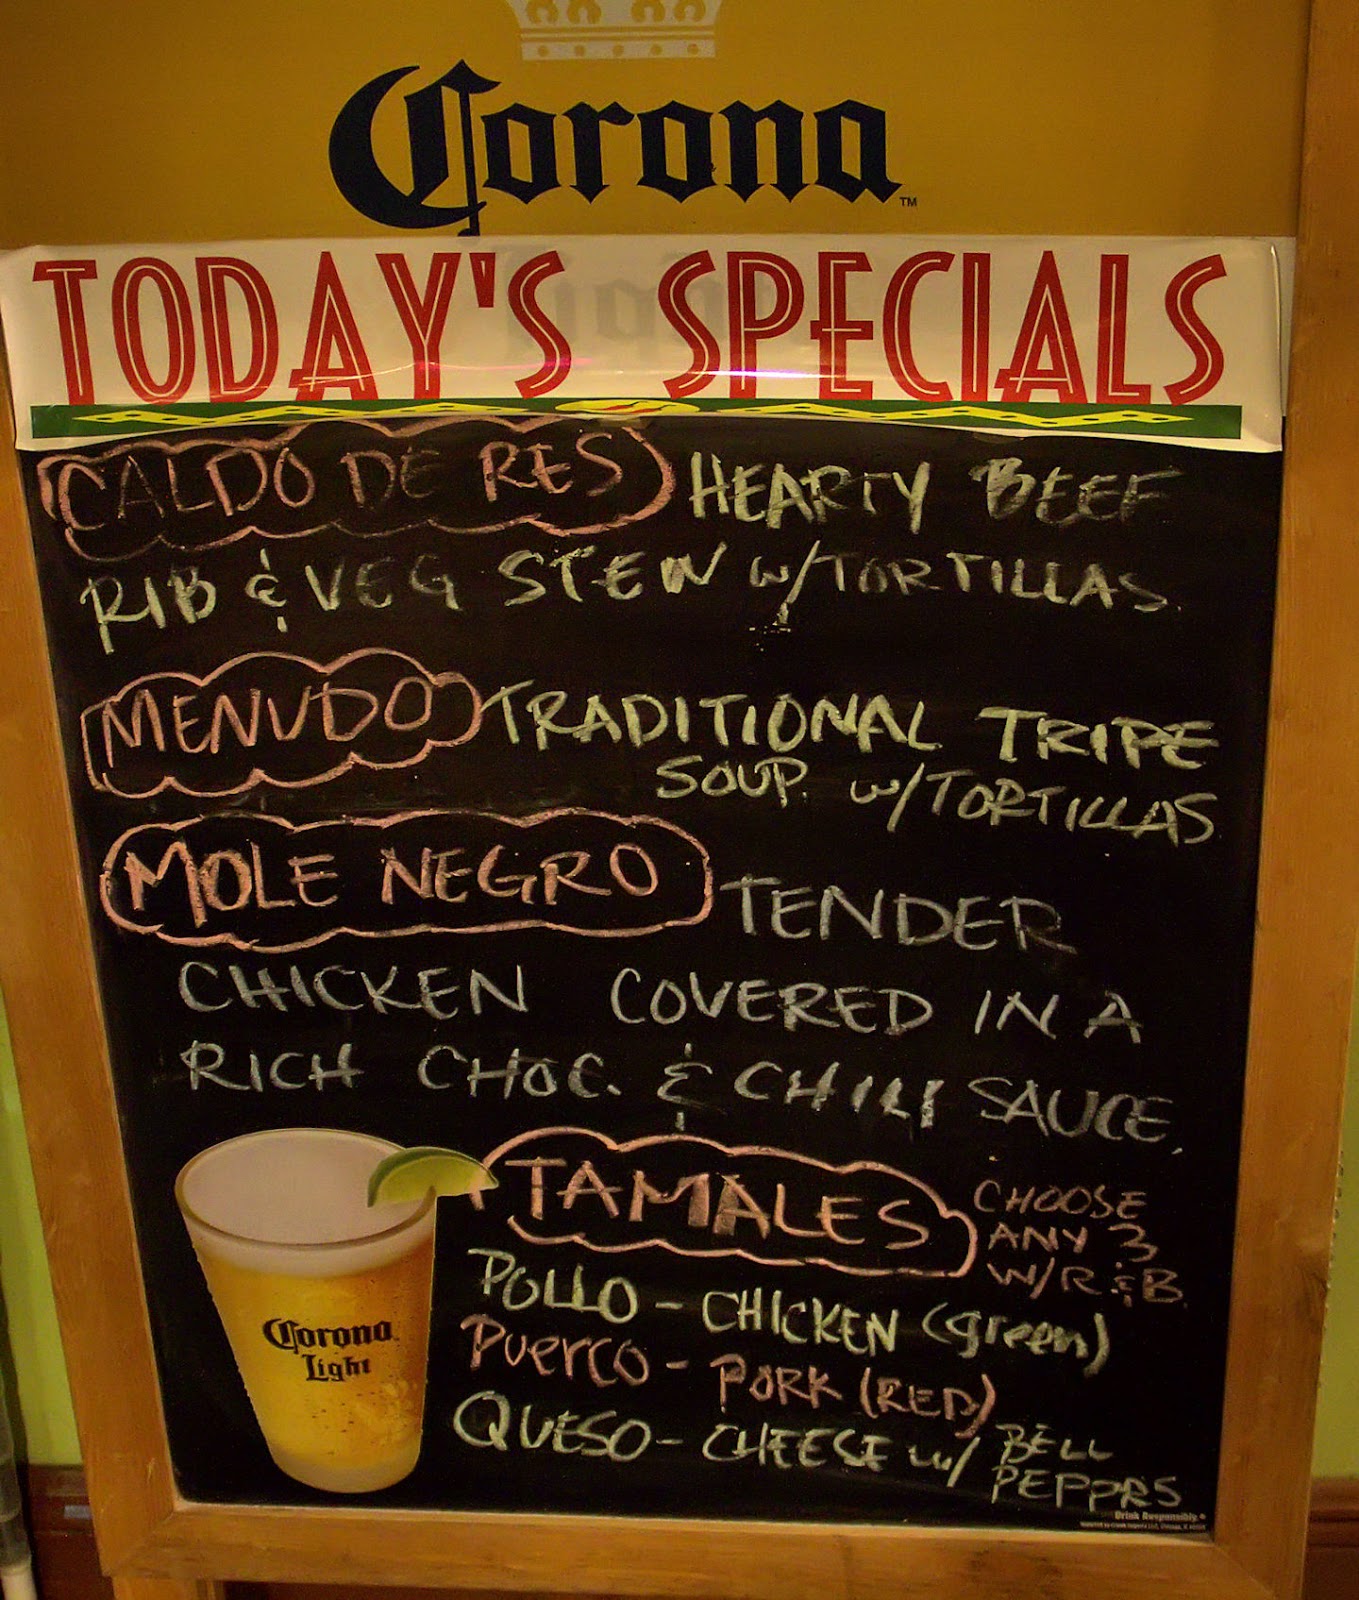 Corona™
TODAY'S SPECIALS
CALDO DE RES HEARTY BEEF
RIB & VEG STEW w/TORTILLAS.
MENUDO TRADITIONAL TRIPE
SOUP. w/TORTILLAS
MOLE NEGRO TENDER
CHICKEN COVERED IN A
RICH CHOC. & CHILI SAUCE.
TAMALES CHOOSE
ANY 3
W/R&B.
POLLO - CHICKEN (green)
PUERCO - PORK (RED)
QUESO - CHEESE w/ BELL
PEPPRS
Corona
Light
Drink Responsibly.